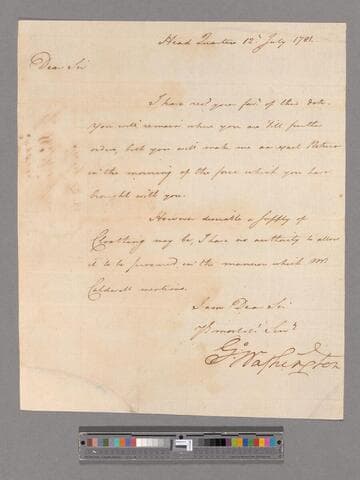 Head Quarters 12th July 1781.
Dear Sir
I have recd your favr of this date.
You will remain where you are 'till further
orders, but you will make me an exact Return
in the morning of the force which you have
brought with you.
However desirable a supply of
Cloathing may be, I have no authority to allow
it to be procured in the manner which Mr
Caldwell mentions.
I am Dear Sir
Yr most obt Servt
Go: Washington